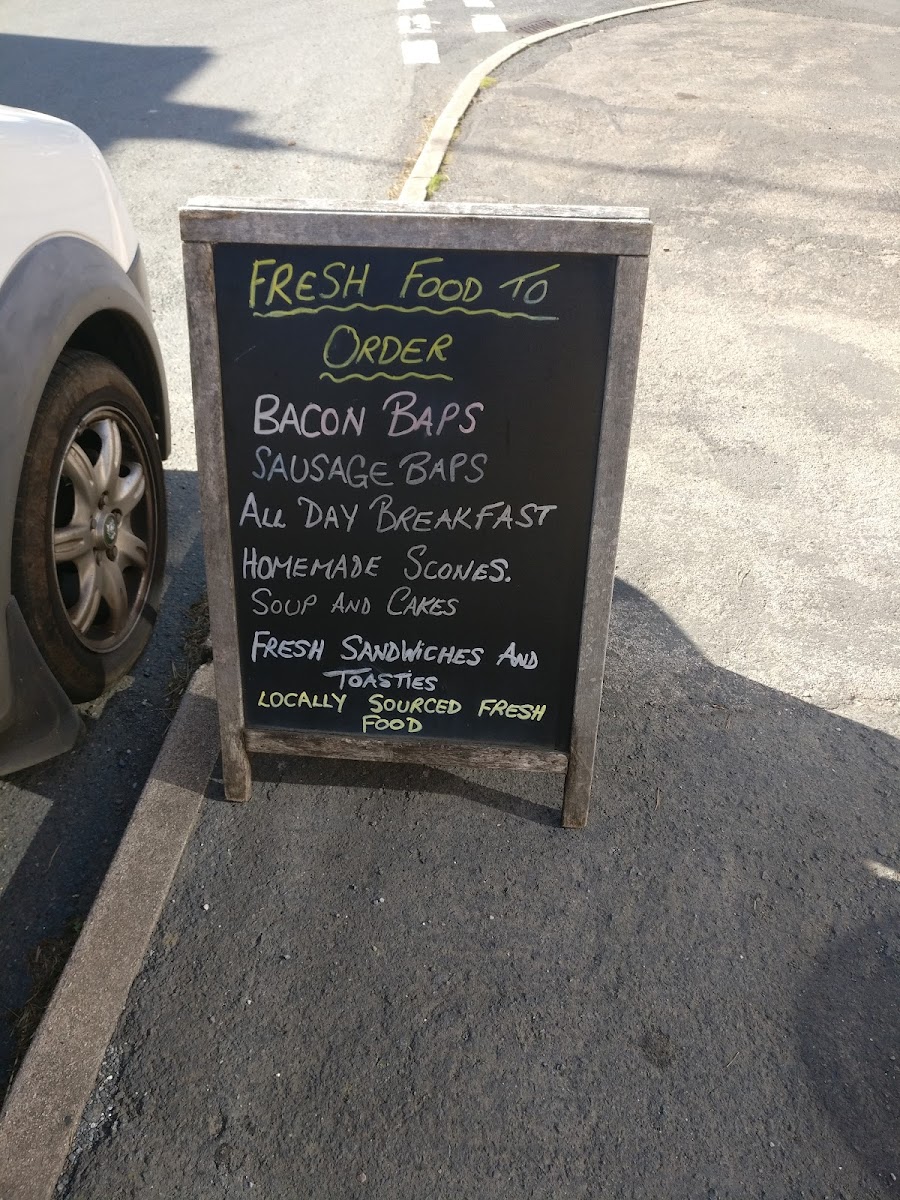 FRESH FOOD TO
ORDER
BACON BAPS
SAUSAGE BAPS
ALL DAY BREAKFAST
HOMEMADE SCONES.
SOUP AND CAKES
FRESH SANDWICHES AND
TOASTIES
LOCALLY SOURCED FRESH
FOOD